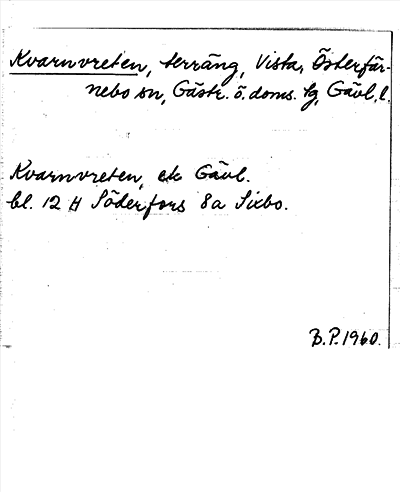 Kvarnvreten, terräng, Vista, Österfär-
nebo sn, Gästr. ö. doms. lg, Gävl. l.
Kvarnvreten, ek Gävl.
bl. 12 H Söderfors 8a Sixbo.
B.P. 1960.